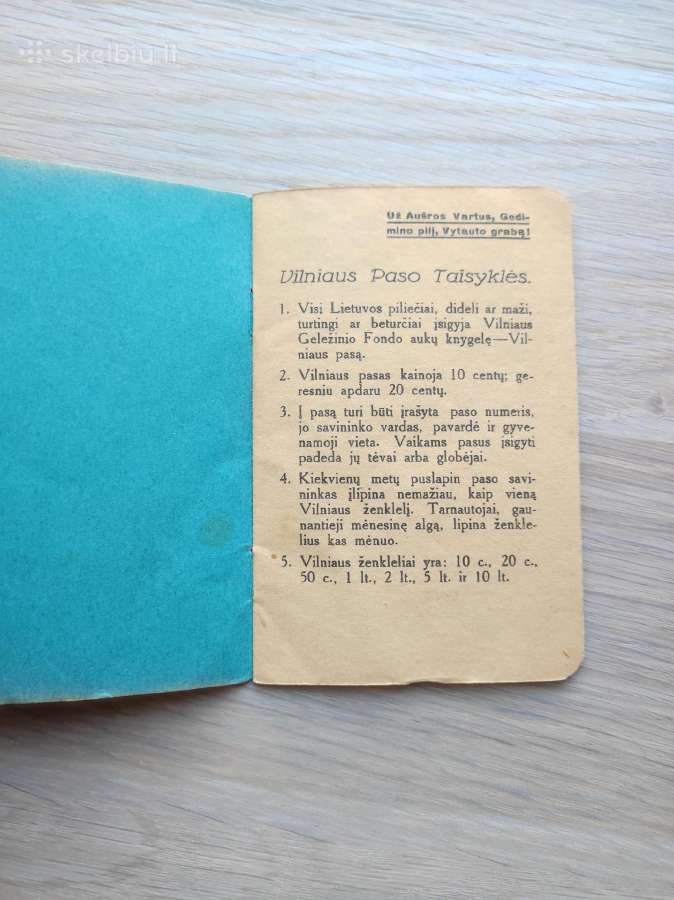 skelbiu.lt
Už Aušros Vartus, Gedi-
mino pilį, Vytauto grabą!
Vilniaus Paso Taisyklės.
1. Visi Lietuvos piliečiai, dideli ar maži,
turtingi ar beturčiai įsigyja Vilniaus
Geležinio Fondo aukų knygelę—Vil-
niaus pasą.
2. Vilniaus pasas kainoja 10 centų; ge-
resniu apdaru 20 centų.
3. Į pasą turi būti įrašyta paso numeris,
jo savininko vardas, pavardė ir gyve-
namoji vieta. Vaikams pasus įsigyti
padeda jų tėvai arba globėjai.
4. Kiekvienų metų puslapin paso savi-
ninkas įlipina nemažiau, kaip vieną
Vilniaus ženklelį. Tarnautojai, gau-
nantieji mėnesinę algą, lipina ženkle-
lius kas mėnuo.
5. Vilniaus ženkleliai yra: 10 c., 20 c.,
50 c., 1 lt., 2 lt., 5 lt. ir 10 lt.